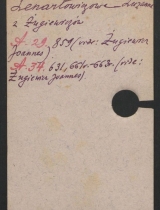 Lenartowiczowa Zuzanna
z Żugiewiczów
A-29, 859 (vide: Żugiewicz
Joannes)
A-34. 631, 661v-663v. (vide:
Żugiewicz Joannes)